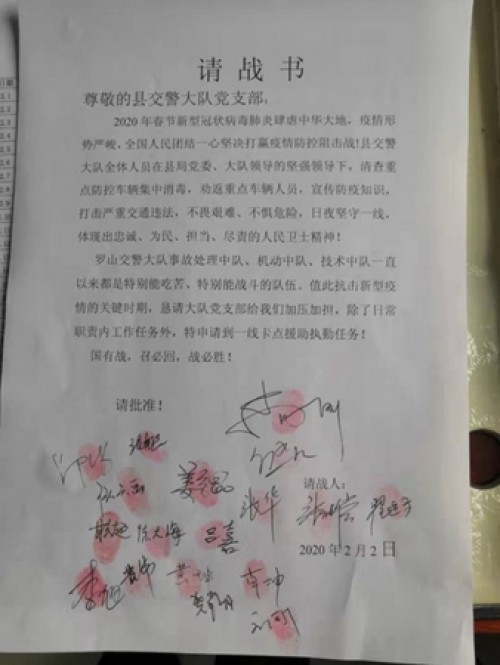 请战书
尊敬的县交警大队党支部:
2020年春节新型冠状病毒肺炎肆虐中华大地，疫情形
势严峻，全国人民团结一心坚决打赢疫情防控阻击战!县交警
大队全体人员在县局党委、大队领导的坚强领导下，清查重
点防控车辆集中消毒，劝返重点车辆人员，宣传防疫知识，
打击严重交通违法，不畏艰难、不惧危险，日夜坚守一线，
体现出忠诚、为民、担当、尽责的人民卫士精神！
罗山交警大队事故处理中队、机动中队、技术中队一直
以来都是特别能吃苦、特别能战斗的队伍。值此抗击新型疫
情的关键时期，恳请大队党支部给我们加压加担，除了日常
职责内工作任务外，特申请到一线卡点援助执勤任务！
国有战，召必回，战必胜！
请批准！
请战人：
张华
吕喜
李旭
2020年2月2日